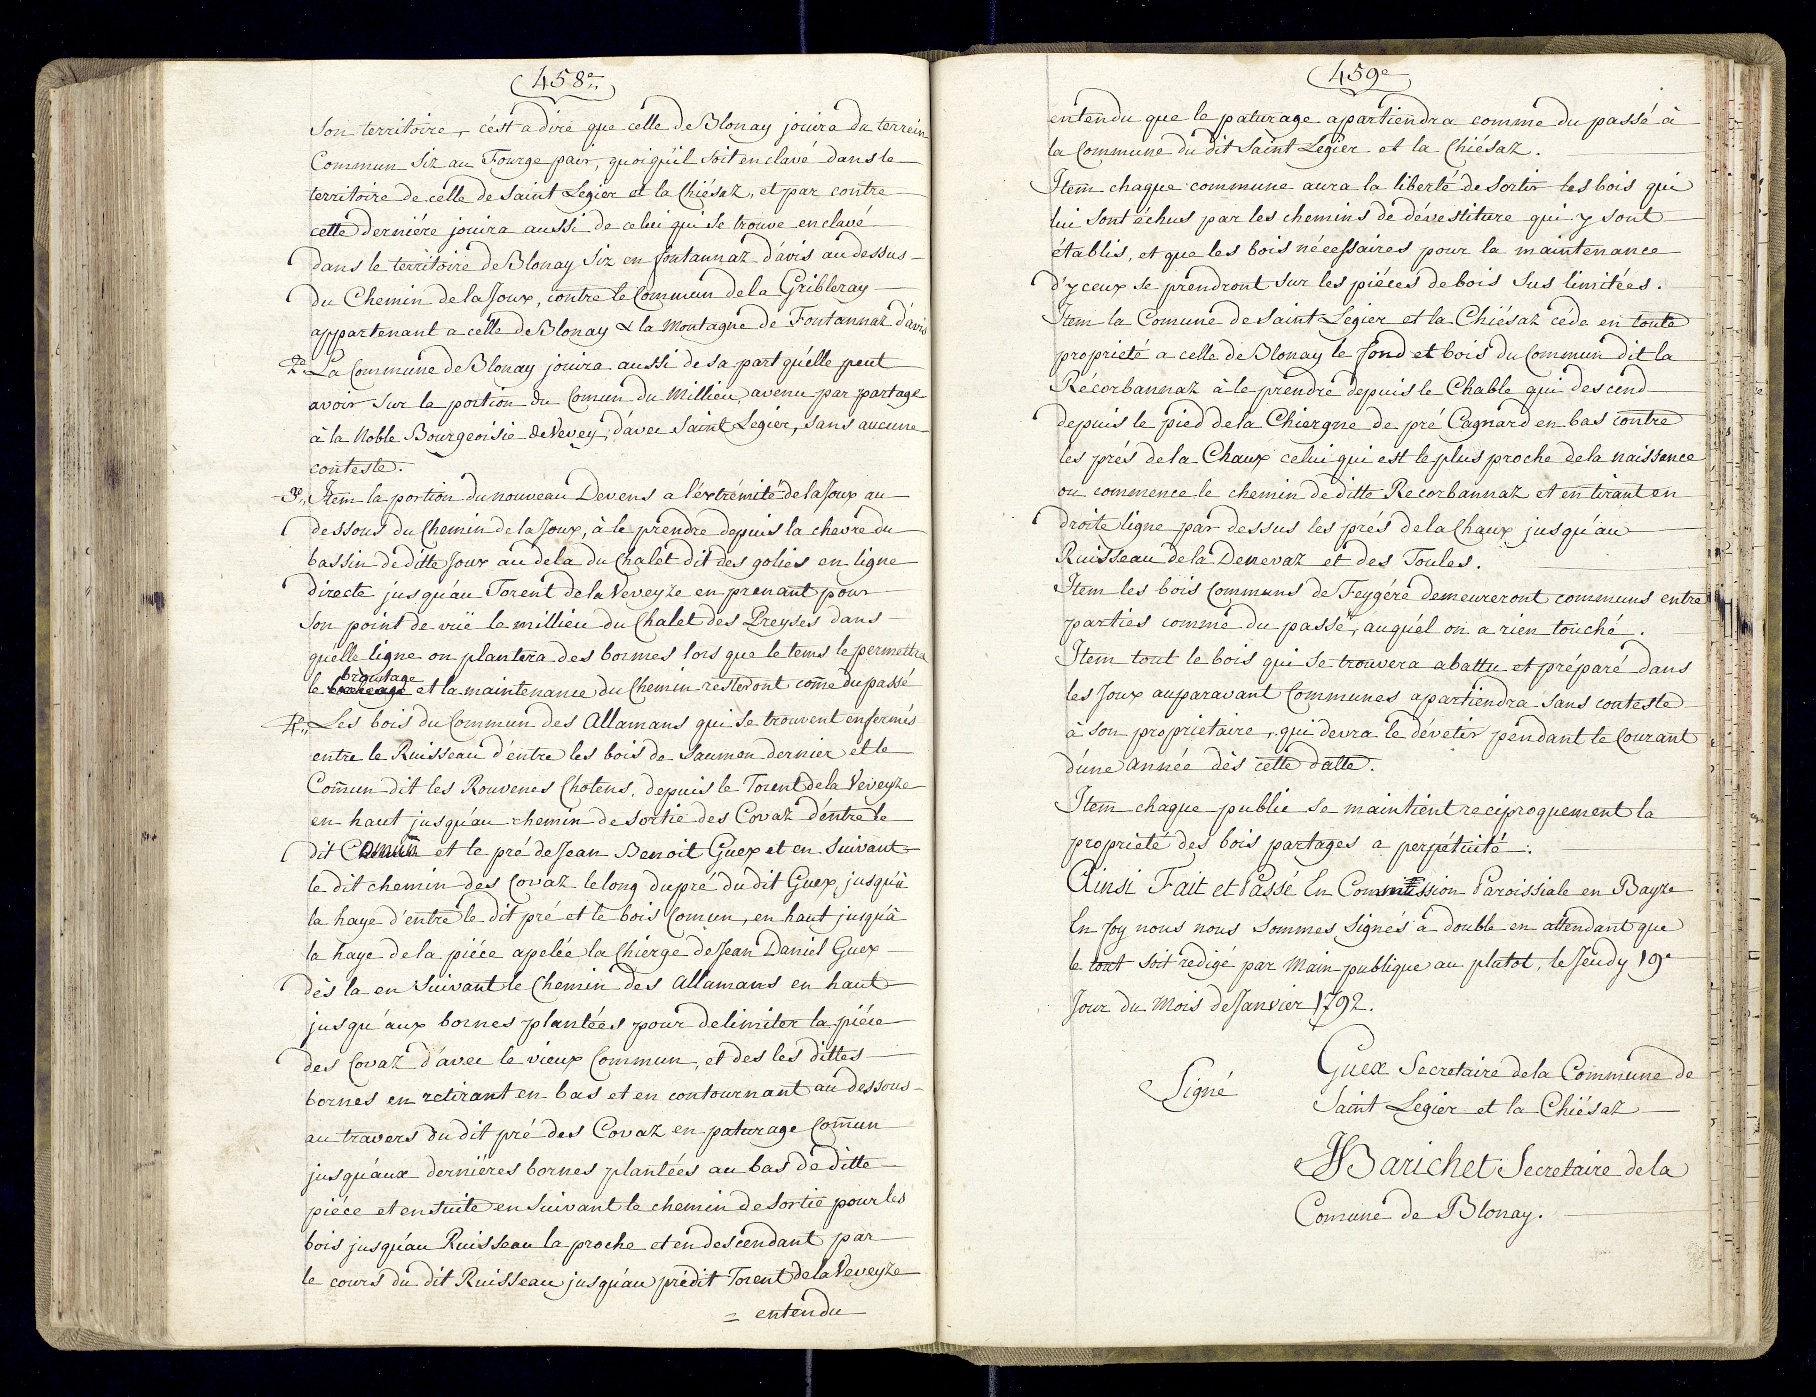 458e
Son territoire, c'est a dire que celle de Blonay jouira du terrein
Commun Siz au Fourge pair, quoiqu'il soit enclavé dans le
territoire de celle de Saint Legier et la Chiésaz, et par contre
cette derniére jouira aussi de celui qui se trouve enclavé
dans le territoire de Blonay Siz en fontannaz d'avis au dessus
du Chemin de la Joux, contre le Commun de la Gribleray
appartenant a celle de Blonay & la Montagne de Fontannaz d'avis
2o. La Commune de Blonay jouira aussi de sa part qu'elle peut
avoir sur la portion du Comun du Millieu, avenu par partage
à la Noble Bourgeoisie de Vevey, d'avec Saint Legier, sans aucune
conteste.
3o. Item la portion du nouveau Devens a l'extrémité de la Joux au
dessous du Chemin de la Joux, à le prendre depuis la chevre du
bassin de ditte Joux au dela du Chalet dit des golies en ligne
directe jusqu'au Torent de la Veveyze en prenant pour
Son point de vuë le millieu du Chalet des Preyses dans
quelle ligne on plantera des bornes lors que le tems le permettra
broutage
le et la maintenance du Chemin resteront come du passé
4o. Les bois du Commun des Allamans qui se trouvent enfermés
entre le Ruisseau d'entre les bois de Saumon dernier et le
Comun dit les Rouvenes Chotens, depuis le Torent de la Veveyze
en haut jusqu'au chemin de sortie des Covaz d'entre le
dit Comun et le pré de Jean Benoit Guex et en suivant
le dit chemin des Covaz le long du pré du dit Guex, jusqu'à
la haye d'entre le dit pré et le bois Comun, en haut jusqu'à
la haye de la piéce apelée la Chierge de Jean Daniel Guex
dès la en suivant le Chemin des Allamans en haut
jusqu'aux bornes plantées pour delimiter la piéce
des Covaz d'avec le vieux Commun, et des les dittes
bornes en retirant en bas et en contournant au dessous
au travers du dit pré des Covaz en paturage Comun
jusqu'aux derniéres bornes plantées au bas de ditte
piéce et ensuite en suivant le chemin de sortie pour les
bois jusqu'au Ruisseau la proche et en descendant par
le cours du dit Ruisseau jusqu'au prédit Torent de la Veveyze
= entendu
459e
entendu que le paturage apartiendra comme du passé à
la Commune du dit Saint Legier et la Chiésaz.
Item chaque commune aura la liberté de sortir les bois qui
lui sont échus par les chemins de dévestiture qui y sont
établis, et que les bois nécessaires pour la maintenance
d'yceux se prendront sur les piéces de bois sus limitées.
Item la Comune de Saint Legier et la Chiésaz céde en toute
proprieté a celle de Blonay le fond et bois du Commun dit la
Récorbannaz à le prendre depuis le Chable qui descend
depuis le pied de la Chiergne de pré Cagnard en bas contre
les prés de la Chaux celui qui est le plus proche de la naissance
ou commence le chemin de ditte Recorbannaz et en tirant en
droite ligne par dessus les prés de la Chaux jusqu'au
Ruisseau de la Denevaz et des Toules.
Item les bois Communs de Feygére demeureront communs entre
parties comme du passé, auquél on a rien touché.
Item tout le bois qui se trouvera abattu et préparé dans
les Joux auparavant Communes apartiendra sans conteste
à son proprietaire, qui devra le dévetir pendant le Courant
d'une année dès cette datte.
Item chaque public se maintient reciproquement la
proprieté des bois partages a perpétuité.
Ainsi Fait et Passé En Commission Paroissiale en Bayze
En foy nous nous sommes signés à double en attendant que
le tout soit redigé par Main publique au plutot, le Jeudy 19e
Jour du Mois de Janvier 1792.
Signé
Guex Secretaire de la Commune de
Saint Legier et la Chiésaz
Barichet Secretaire de la
Comune de Blonay.